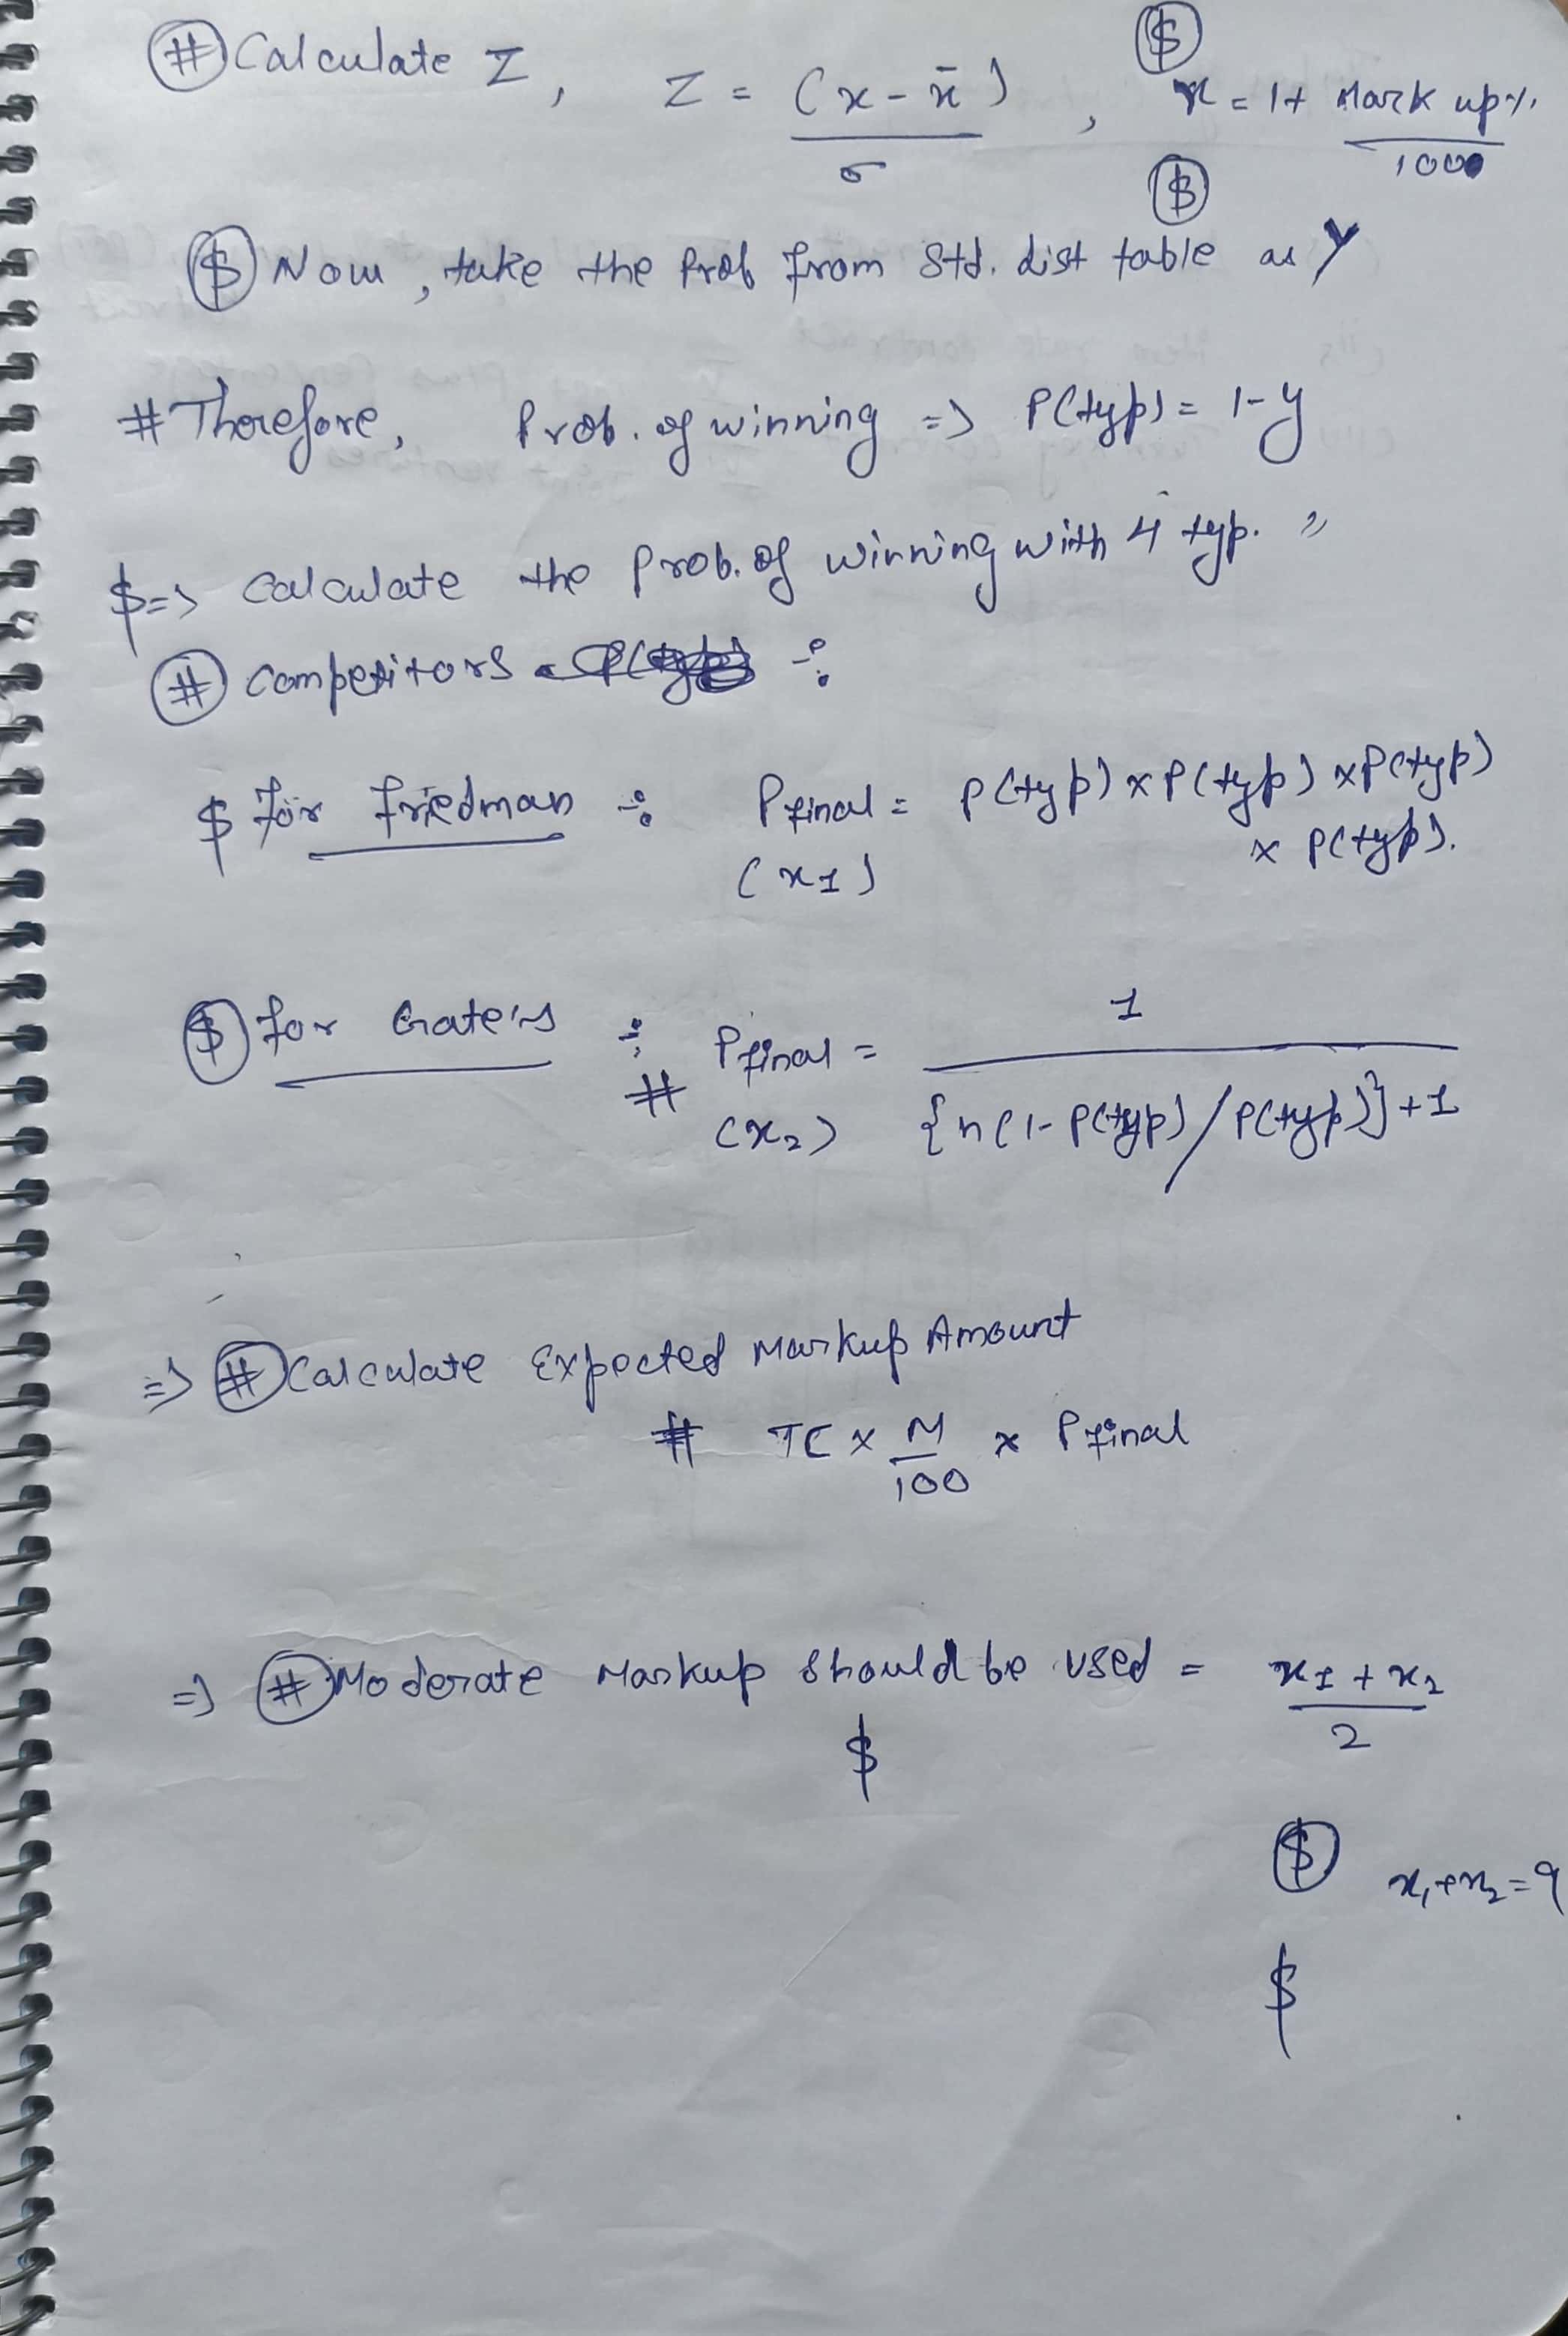 # Calculate Z, Z = (x - x̄) / σ, $ x = 1 + Mark up% / 1000
$ Now, take the Prob from Std. dist table as Y
# Therefore, Prob. of winning => P(typ) = 1-y
$ => Calculate the Prob. of winning with 4 typ.
# competitors ÷
$ For Friedman ÷ Pfinal = P(typ) x P(typ) x P(typ)
(x1) x P(typ).
$ for Gate's ÷ Pfinal = 1
# (x2) {n(1-P(typ)/P(typ)}+1
=> # Calculate Expected Markup Amount
# TC x M/100 x Pfinal
=> # Moderate Markup should be used = x1 + x2 / 2
$
$
$